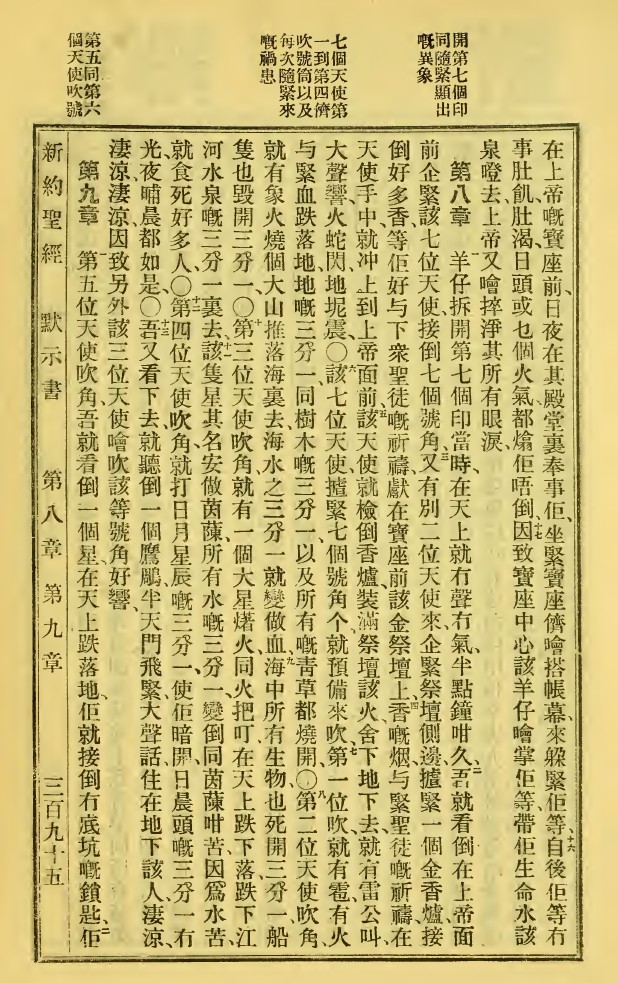 開第七個印
同隨緊顯出
嘅異象
七個天使第
一到第四儕
吹號筒以及
每次隨緊來
嘅禍患
第五同第六
個天使吹號
在上帝嘅寶座前、日夜在其殿堂裏奉事佢、坐緊寶座儕噲搭帳幕、來躲緊佢等、十六自後佢等冇
事肚飢肚渴、日頭或乜個火氣都熻佢唔倒、十七因致寶座中心該羊仔噲掌佢等、帶佢生命水該
泉嶝去、上帝又噲捽淨其所有眼淚、
第八章 一羊仔拆開第七個印當時、在天上就冇聲冇氣、半點鐘咁久、二吾就看倒在上帝面
前企緊該七位天使、接倒七個號角、三又有別二位天使來企緊祭壇側邊、攎緊一個金香爐、接
倒好多香、等佢好与下衆聖徒嘅祈禱獻在寶座前該金祭壇上、四香嘅烟、与緊聖徒嘅祈禱、在
天使手中就冲上到上帝面前、五該天使就檢倒香爐、裝滿祭壇該火、舍下地下去、就有雷公叫、
大聲響、火蛇閃、地坭震、〇六該七位天使攎緊七個號角个、就預備來吹、七第一位吹、就有雹有火
与緊血跌落地、地嘅三分一、同樹木嘅三分一、以及所有嘅靑草都燒開、〇八第二位天使吹角、
就有象火燒個大山推落海裏去、海水之三分一就變做血、九海中所有生物也死開三分一、船
隻也毀開三分一、〇十第三位天使吹角、就有一個大星㷮火同火把叮、在天上跌下落、跌下江
河水泉嘅三分一裏去、十一該隻星其名安做茵蔯、所有水嘅三分一、變倒同茵蔯咁苦、因爲水苦、
就食死好多人、〇十二第四位天使吹角、就打日月星辰嘅三分一、使佢暗開、日晨頭嘅三分一冇
光、夜晡晨都如是、〇十三吾又看下去、就聽倒一個鷹鵰、半天門飛緊大聲話、住在地下該人凄涼、
凄涼、凄涼、因致另外該三位天使噲吹該等號角好響、
第九章 一第五位天使吹角、吾就看倒一個星、在天上跌落地、佢就接倒冇底坑嘅鎖匙、二佢
新約聖經 默示書 第八章 第九章 三百九十五